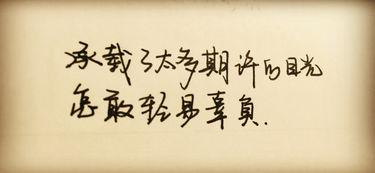 承载了太多期许的目光
怎敢轻易辜负.